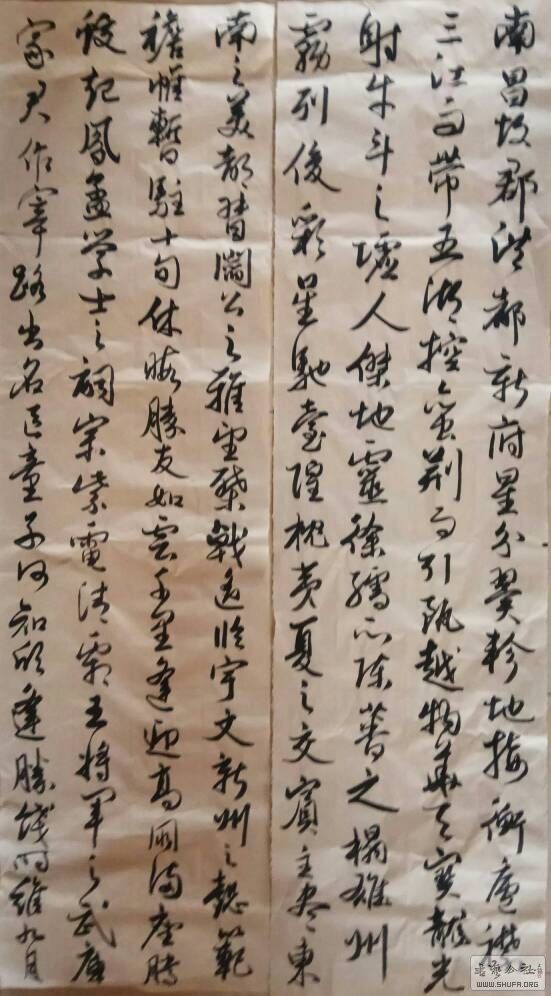 南昌故郡洪都新府星分翼軫地接衡廬襟
三江而帶五湖控蛮荆而引甌越物華天寶龍光
射牛斗之墟人傑地靈徐孺下陳蕃之榻雄州
霧列俊彩星馳臺隍枕夷夏之交賓主尽東
南之美都督閻公之雅望棨戟遥临宇文新州之懿範
襜帷暫駐十旬休暇勝友如雲千里逢迎高朋满座騰
蛟起鳳孟学士之詞宗紫電清霜王將軍之武庫
家君作宰路出名区童子何知躬逢勝餞时維九月
书法公社
WWW.SHUFA.ORG